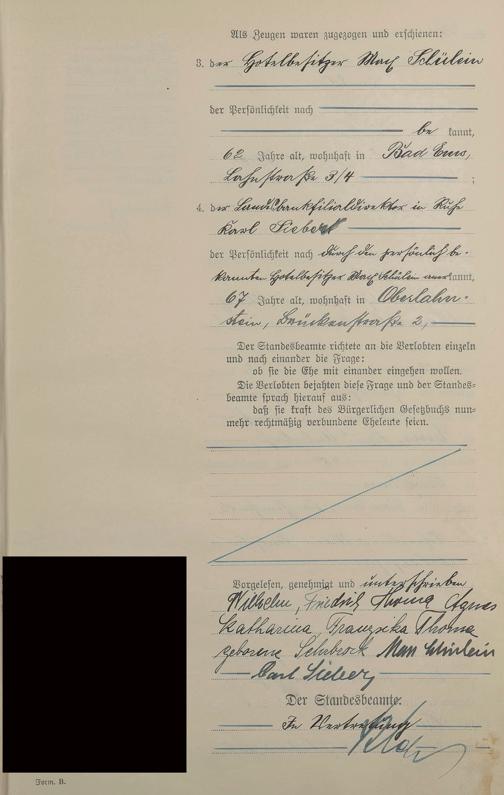 Als Zeugen waren zugezogen und erschienen:
3. der Hotelbesitzer Max Schülein
der Persönlichkeit nach
be kannt,
62 Jahre alt, wohnhaft in Bad Ems,
Lahnstraße 3/4 ;
4. der Landesbankfilialdirektor in Ruhe
Karl Siebert
der Persönlichkeit nach durch den persönlich be-
kannten Hotelbesitzer Max Schülein anerkannt,
67 Jahre alt, wohnhaft in Oberlahn-
stein, Brückenstraße 2,
Der Standesbeamte richtete an die Verlobten einzeln
und nach einander die Frage:
ob sie die Ehe mit einander eingehen wollen.
Die Verlobten bejahten diese Frage und der Standes=
beamte sprach hierauf aus:
daß sie kraft des Bürgerlichen Gesetzbuchs nun=
mehr rechtmäßig verbundene Eheleute seien.
Vorgelesen, genehmigt und unterschrieben
Wilhelm, Friedrich Thoma Agnes
Katharina Franziska Thoma
geborene Max Schülein
Carl Siebert
Der Standesbeamte.
In Vertretung
Form. B.